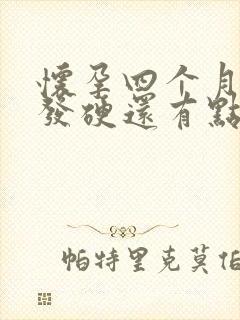 懷孕四个月
發硬還有點
帕特里克莫伯